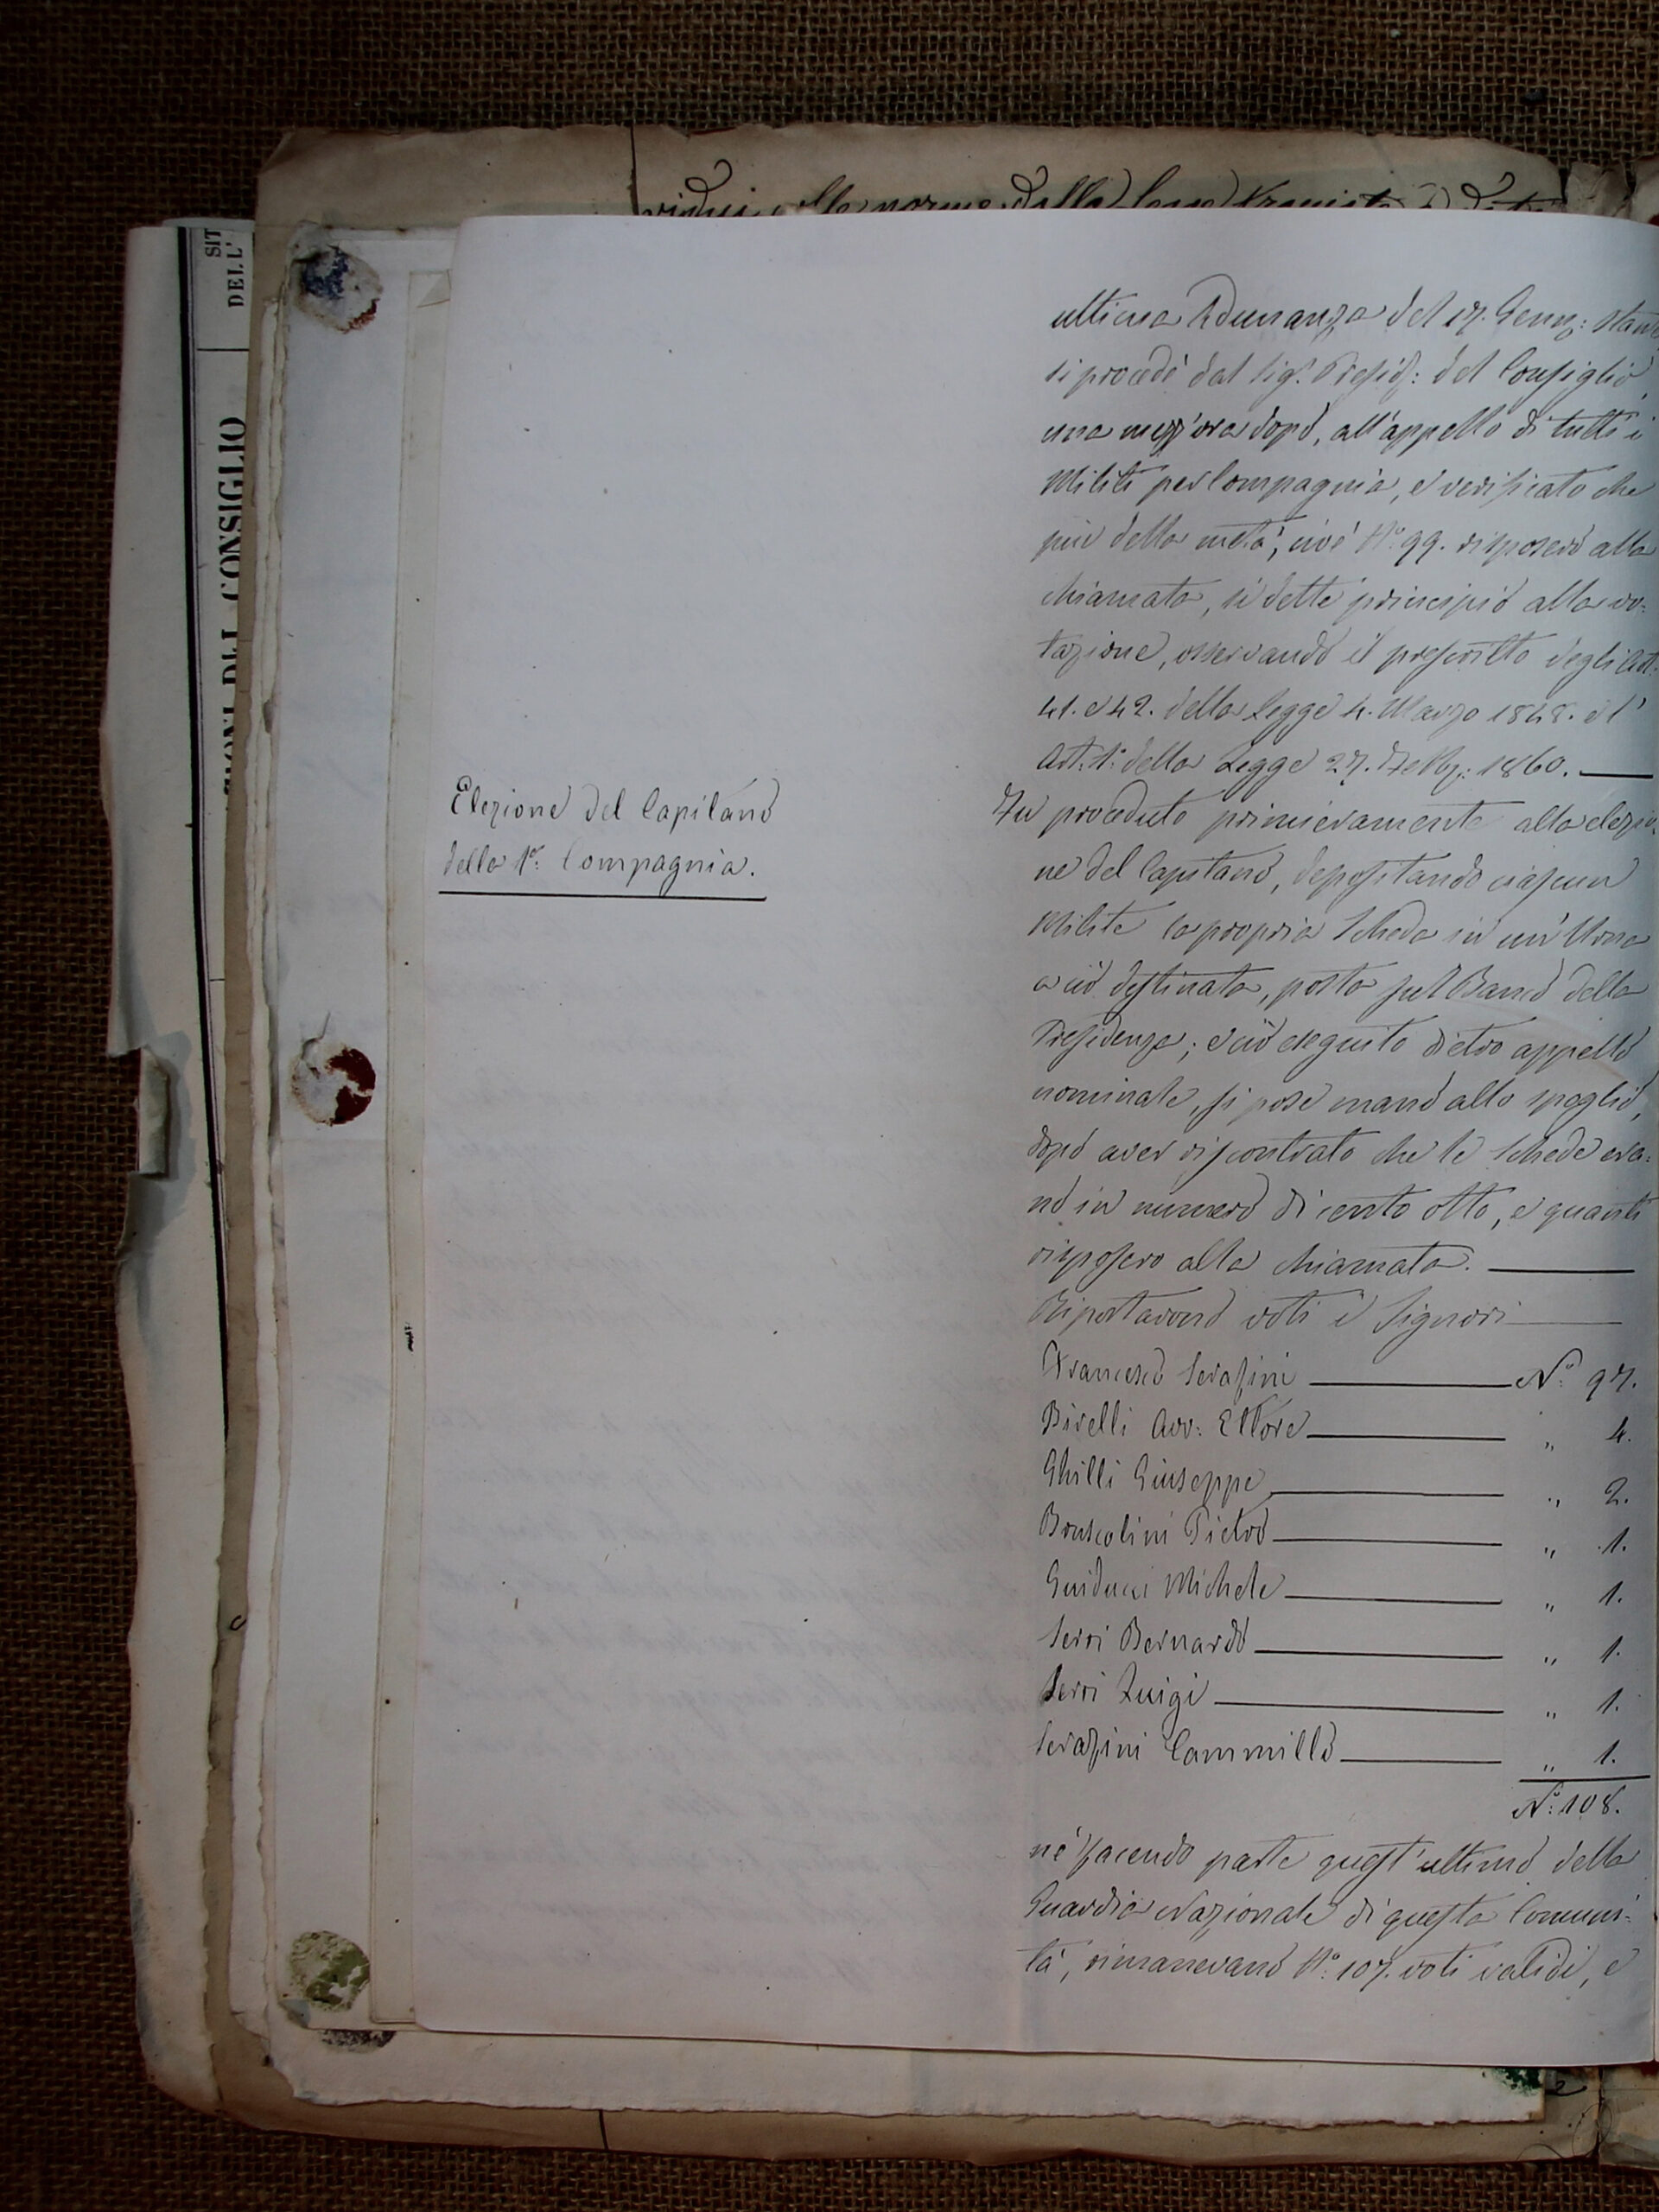 SIT
DELL'
ZIONI DEL CONSIGLIO
ultima Adunanza del 17. Genn: stante
si procedè dal Sig. Presid: del Consiglio
una mezz'ora dopo, all'appello di tutti i
Militi per Compagnia, e verificato che
più della metà, cioè N.° 99. risposero alla
chiamata, si dette principio alla vo:
tazione, osservando il prescritto degli Art:
41. e 42. della Legge 4. Marzo 1848. e l'
Art. 1.° della Legge 27. Febb: 1860.
Elezione del Capitano
della 1.a Compagnia.
Fu proceduto primieramente alla elezio:
ne del Capitano, depositando ciascun
Milite la propria Scheda in un'Urna
a ciò destinata, posta sul Banco della
Presidenza; e ciò eseguito dietro appello
nominale, si pose mano allo spoglio,
dopo aver riscontrato che le Schede era:
no in numero di cento otto, e quanti
risposero alla chiamata.
Riportarono voti i Signori
Francesco Serafini N.° 97.
Birelli Avv: Ettore " 4.
Ghilli Giuseppe " 2.
Bonscolini Pietro " 1.
Guiducci Michele " 1.
Serri Bernardo " 1.
Serri Luigi " 1.
Serafini Cammillo " 1.
N.° 108.
nè facendo parte quest'ultimo della
Guardia Nazionale di questa Comuni:
tà, rimanevano N.° 107. voti validi, e